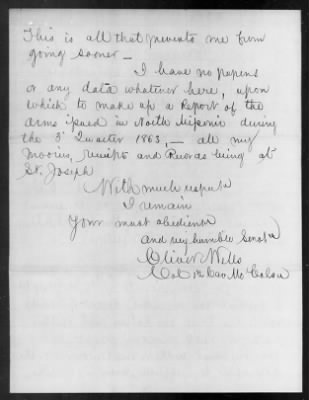 This is all that prevents me from
going sooner —
I have no papers
or any data whatever here, upon
which to make up a Report of the
arms issued in North Missouri during
the 3d Quarter 1863, — all my
Invoices, receipts and Records being at
St. Joseph
With much respect
I remain
Your most obedient
and very humble Servt
Oliver Wells
Col 12 Cav Mo